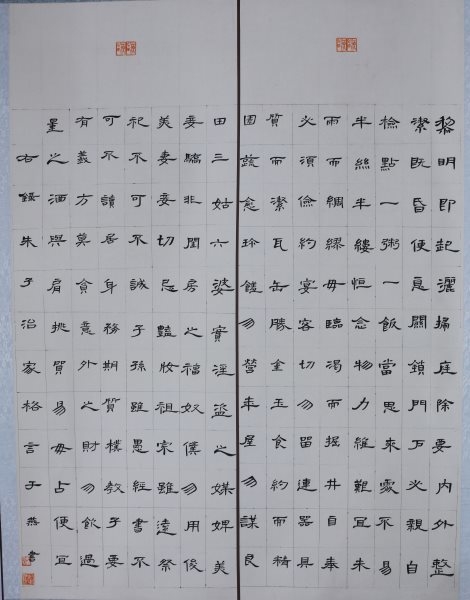 黎明即起灑掃庭除要內外整
潔既昏便息關鎖門戶必親自
檢點一粥一飯當思來處不易
半絲半縷恒念物力維艱宜未
雨而綢繆毋臨渴而掘井自奉
必須儉約宴客切勿留連器具
質而潔瓦缶勝金玉食約而精
園蔬愈珍饈勿營華屋勿謀良
田三姑六婆實淫盜之媒婢美
妾嬌非閨房之福奴僕勿用俊
美妻妾切忌豔妝祖宗雖遠祭
祀不可不誠子孫雖愚經書不
可不讀居身務期質樸教子要
有義方莫貪意外之財勿飲過
量之酒與肩挑貿易毋占便宜
右錄朱子治家格言于燕書